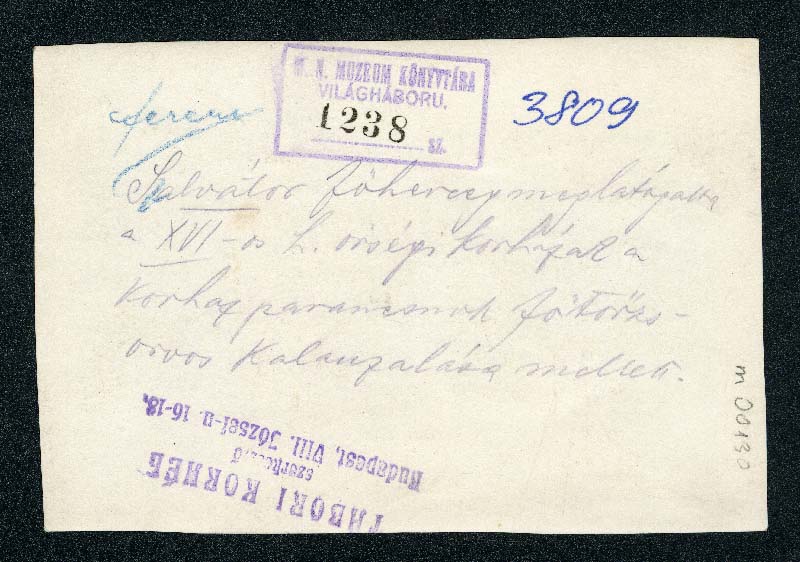 M. N. MUZEUM KÖNYVTÁRA
VILÁGHÁBORU.
1238 sz.
3809
Ferenc
Salvátor főherceg meglátogatta
a XVI-os h. őrségi korházat a
Korház parancsnok főtörzs-
orvos Kalauzalása mellett.
m 00130
TÁBORI KORNÉL
szerkesztő
Budapest, VIII. József-u. 16-18.